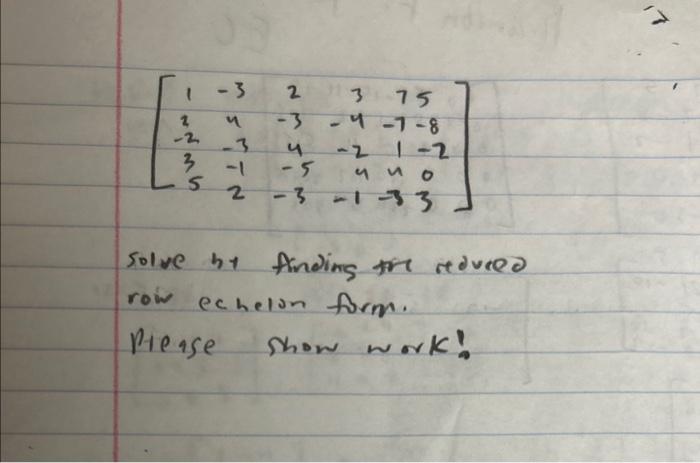 1 -3 2 3 7 5
2 4 -3 -4 -7 -8
-2 -3 4 -2 1 -2
3 -1 -5 4 4 0
5 2 -3 -1 -3 3
solve by finding the reduced
row echelon form.
Please show work!